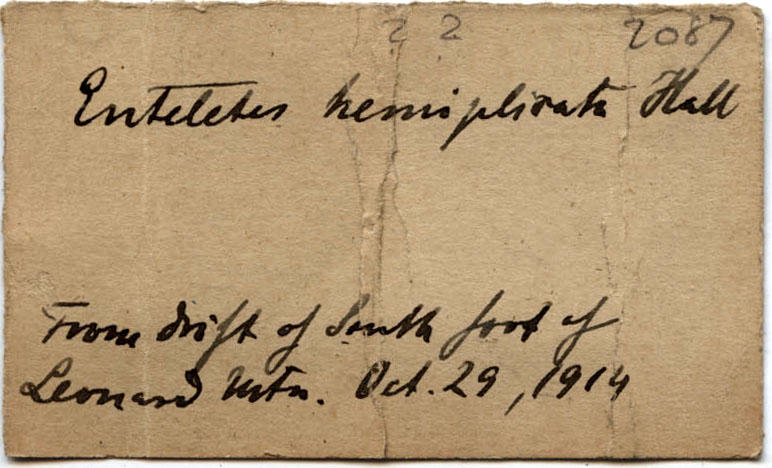 2 2 2087
Enteletes hemiplicata Hall
From drift of South foot of
Leonard Mtn. Oct. 29, 1914